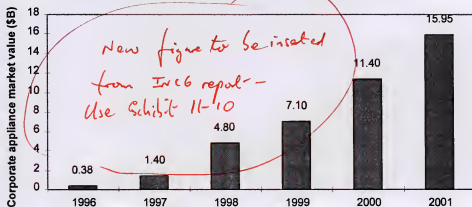 Corporate appliance market value ($B)
18
16
14
12
10
8
6
4
2
0
New figure to be inseted
from report -
Use Exhibit 11-10
0.38
1.40
4.80
7.10
11.40
15.95
1996
1997
1998
1999
2000
2001